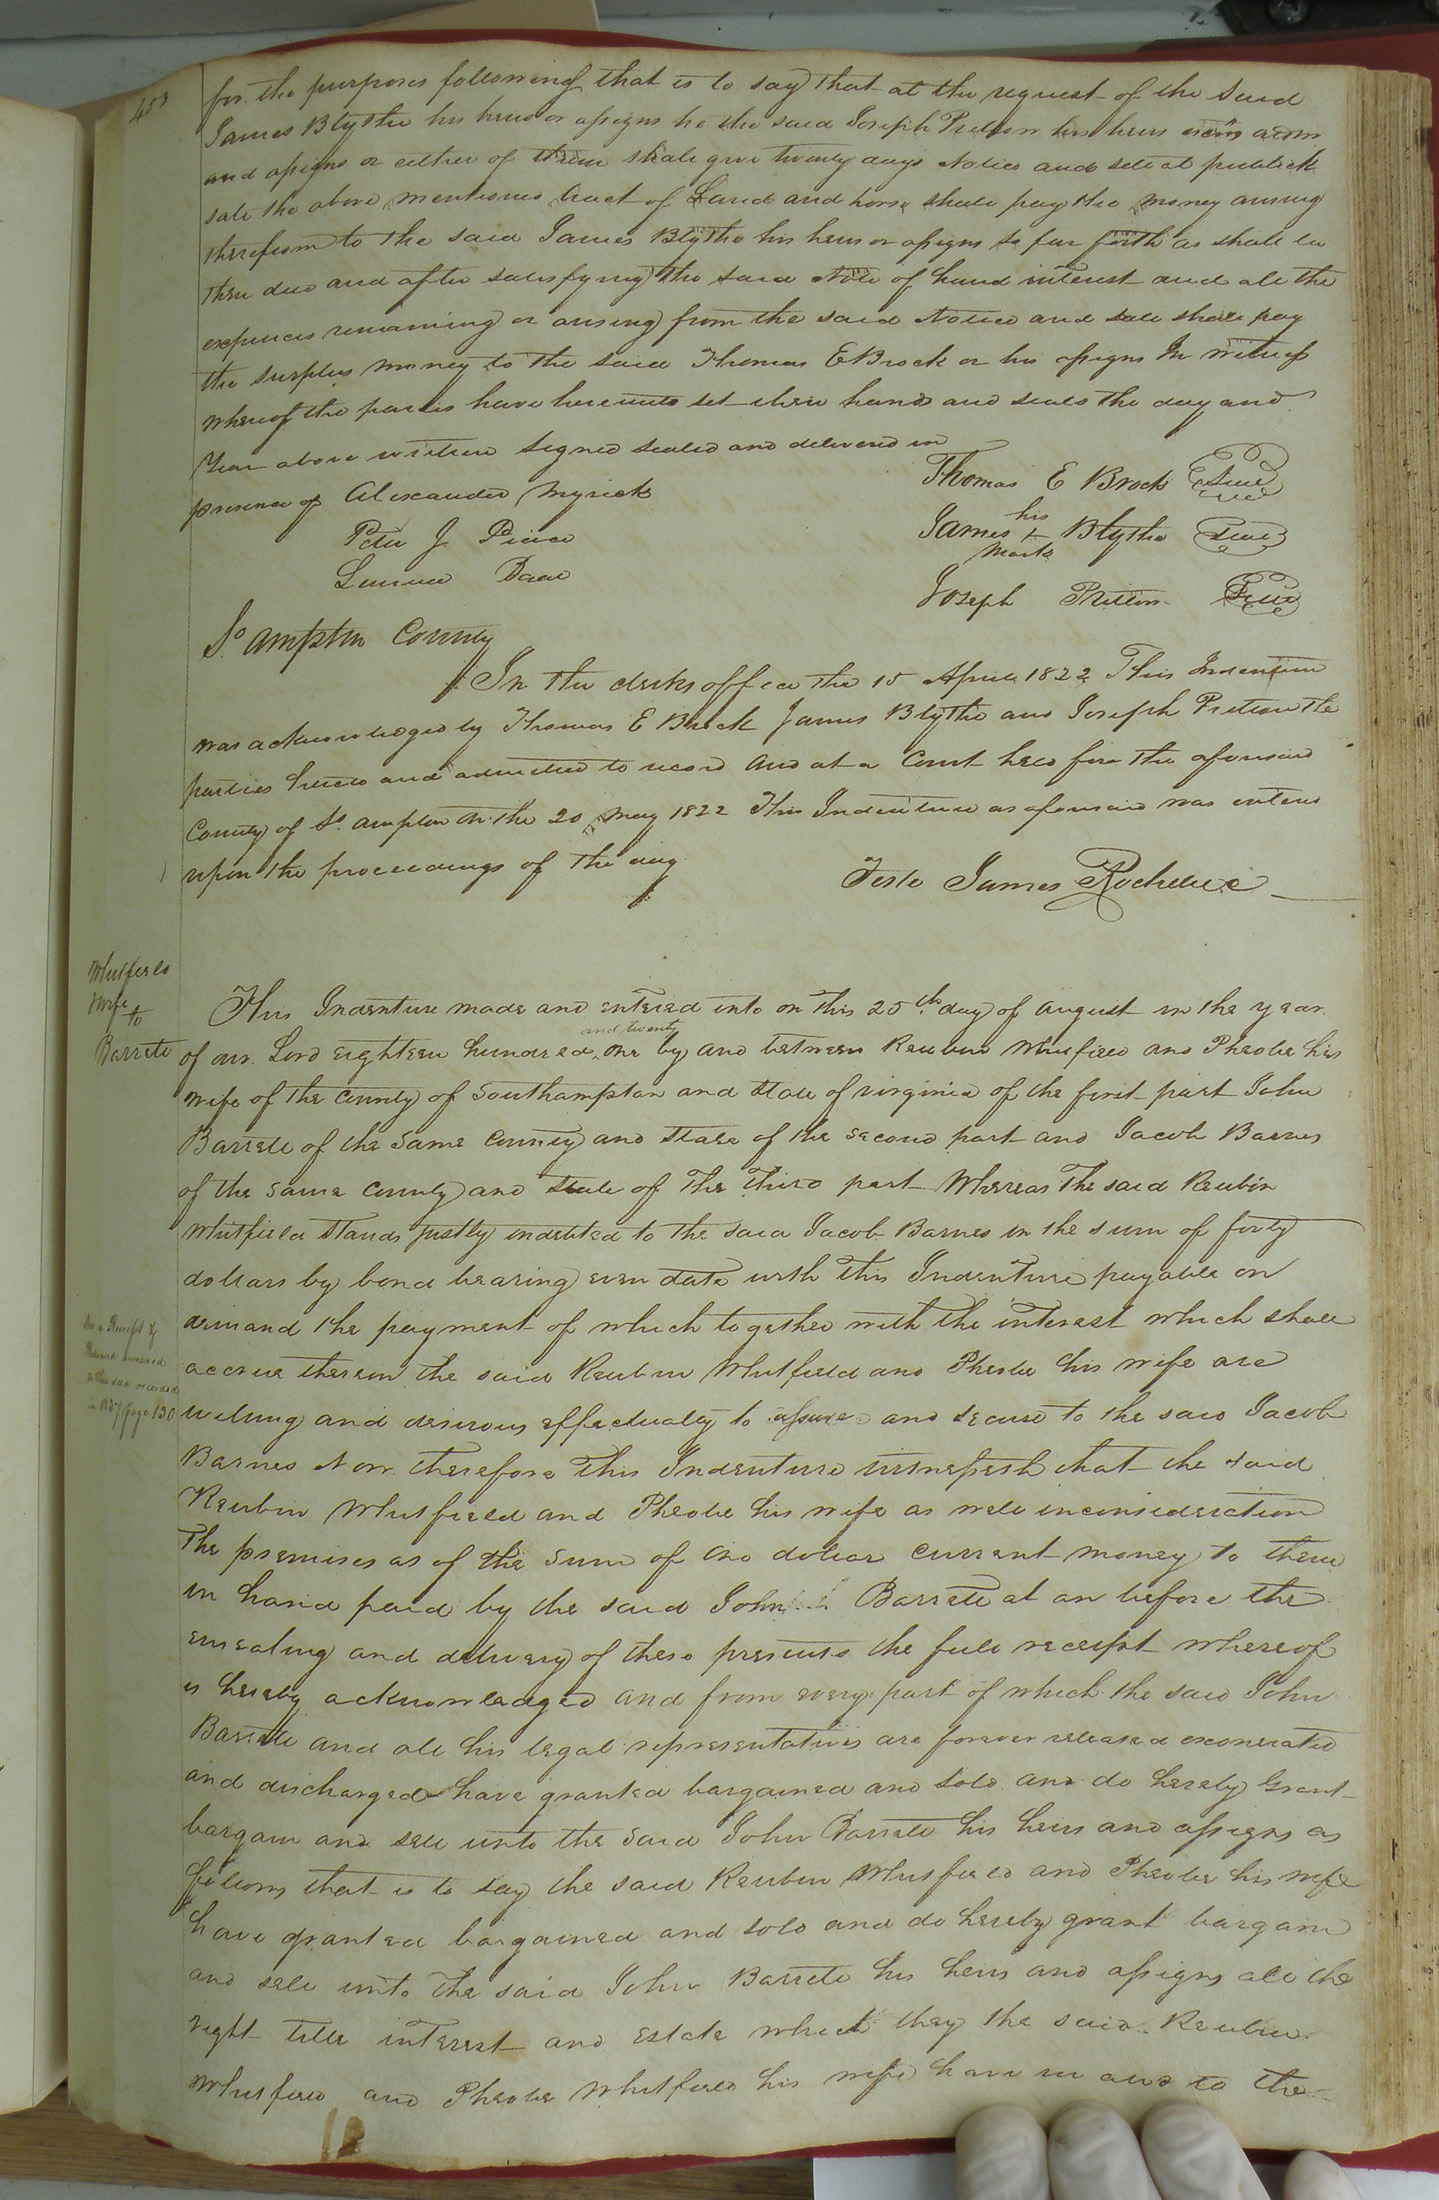 453
for the purposes following that is to say that at the request of the said
James Blythe his heirs or assigns he the said Joseph Pretlow his heirs
and assigns or either of them shall give twenty days Notice and sell at publick
sale the above mentioned tract of Land and horse shall pay the money arising
therefrom to the said James Blythe his heirs or assigns so far forth as shall be
then due and after satisfying the said Note of hand interest and all the
expences remaining or arising from the said Notice and sale shall pay
the surplus money to the said Thomas E Brock or his assigns In witness
whereof the parties have hereunto set their hands and seals the day and
Year above written Signed sealed and delivered in
presence of Alexander Myrick
Peter J Pierce
Thomas E Brock Seal
James his + mark Blythe Seal
Joseph Pretlow Seal
So. ampton County
In the clerks office the 15 April 1822 This Indenture
was acknowledged by Thomas E Brock James Blythe and Joseph Pretlow the
parties thereto and admitted to record And at a Court held for the aforesaid
County of So. ampton on the 20 May 1822 This Indenture as aforesaid was entered
upon the proceedings of the day
Teste James Rochelle
Whitfield
Wife
to
Barrett
This Indenture made and entered into on this 25th day of August in the year
of our Lord eighteen hundred and twenty one by and between Reubin Whitfield and Pheobe his
wife of the County of Southampton and State of virginia of the first part John
Barrett of the same County and State of the second part and Jacob Barnes
of the same County and State of the third part Whereas the said Reubin
Whitfield stands justly indebted to the said Jacob Barnes in the sum of forty
dollars by bond bearing even date with this Indenture payable on
demand the payment of which together with the interest which shall
accrue thereon the said Reubin Whitfield and Pheobe his wife are
willing and desirous effectually to assure and secure to the said Jacob
Barnes Now therefore This Indenture witnesseth that the said
Reubin Whitfield and Pheobe his wife as well inconsideration
The premises as of the sum of one dollar current money to them
in hand paid by the said John Barrett at or before the
ensealing and delivery of these presents the full receipt whereof
is hereby acknowledged and from every part of which the said John
Barrett and all his legal representatives are forever released exonerated
and discharged have granted bargained and sold and do hereby Grant
bargain and sell unto the said John Barrett his heirs and assigns as
follows that is to say the said Reubin Whitfield and Pheobe his wife
have granted bargained and sold and do hereby grant bargain
and sell unto the said John Barrett his heirs and assigns all the
right title interest and estate which they the said Reubin
Whitfield and Pheobe Whitfield his wife have in and to the
See a Receipt &
Release annexed
to this deed recorded
in 1837 page 130